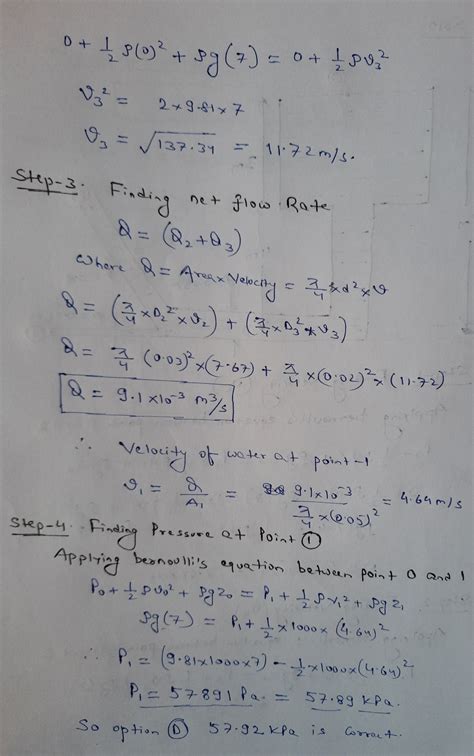 0 + 1/2 ρ(0)² + ρg(7) = 0 + 1/2 ρϑ₃²
ϑ₃² = 2×9.81×7
ϑ₃ = √137.34 = 11.72 m/s.
Step-3. Finding net flow Rate
Q = (Q₂+Q₃)
where Q = Area×Velocity = π/4 × d² × ϑ
Q = (π/4 × D₂² × ϑ₂) + (π/4 × D₃² × ϑ₃)
Q = π/4 (0.03)² × (7.67) + π/4 × (0.02)² × (11.72)
Q = 9.1×10⁻³ m³/s
∴ Velocity of water at point-1
ϑ₁ = Q/A₁ = 9.1×10⁻³ / π/4 × (0.05)² = 4.64 m/s
Step-4. Finding Pressure at Point ①
Applying beonoulli's equation between point 0 and 1
P₀ + 1/2 ρϑ₀² + ρgz₀ = P₁ + 1/2 ρv₁² + ρgz₁
ρg(7) = P₁ + 1/2 × 1000 × (4.64)²
∴ P₁ = (9.81×1000×7) - 1/2 ×1000×(4.64)²
P₁ = 57891 Pa = 57.89 kPa.
So option Ⓓ 57.92 kPa is correct.